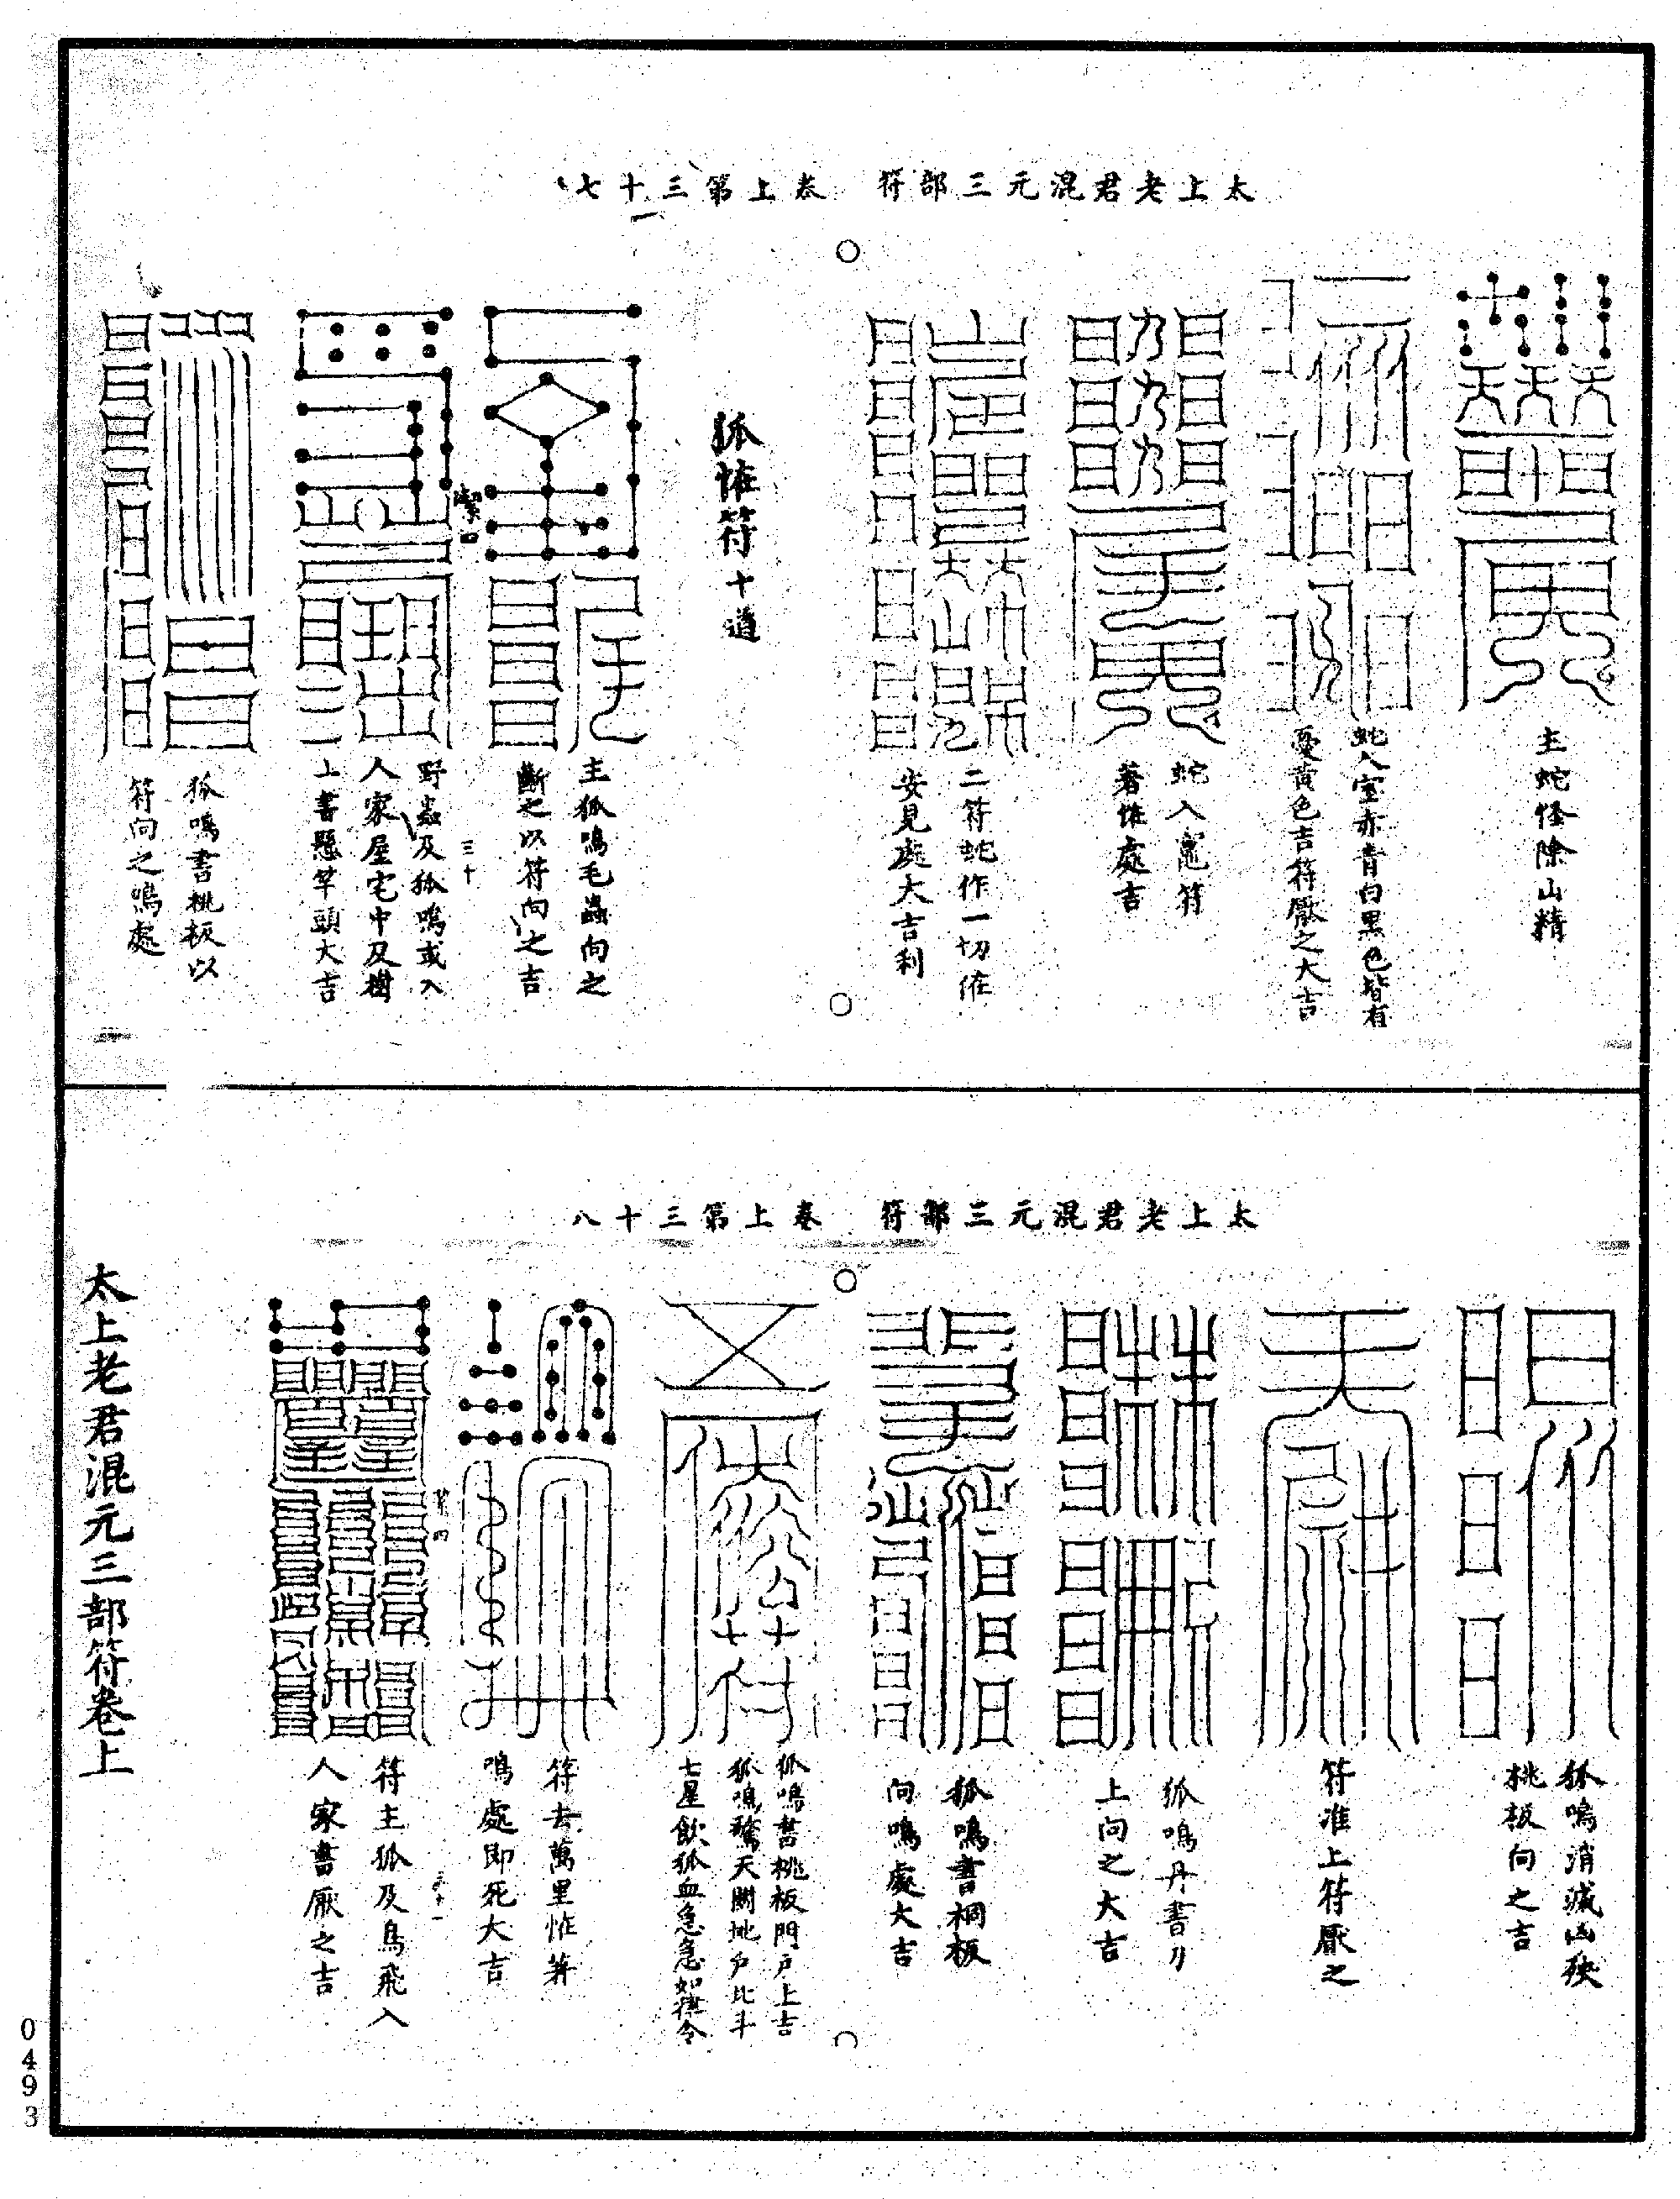 太上老君混元三部符　卷上第三十七
主蛇怪除山精
蛇入室赤青白黑色皆有
憂黃色吉符厭之大吉
蛇入竈符
著恠處吉
二符蛇作一切恠
安見處大吉利
狐恠符十道
主狐鳴毛蟲向之
斷之以符向之吉
三十
野蟲及狐鳴或入
人家屋宅中及樹
上書懸竿頭大吉
狐鳴書桃板以
符向之鳴處
太上老君混元三部符　卷上第三十八
狐鳴消滅凶殃
桃板向之吉
符准上符厭之
狐鳴丹書刀
上向之大吉
狐鳴書桐板
向鳴處大吉
狐鳴書桃板門戶上吉
狐鳴驚天關地戶北斗
七星飲狐血急急如律令
符去萬里恠
鳴處即死大吉
三十一
符主狐及鳥飛入
人家書厭之吉
太上老君混元三部符卷上
0493